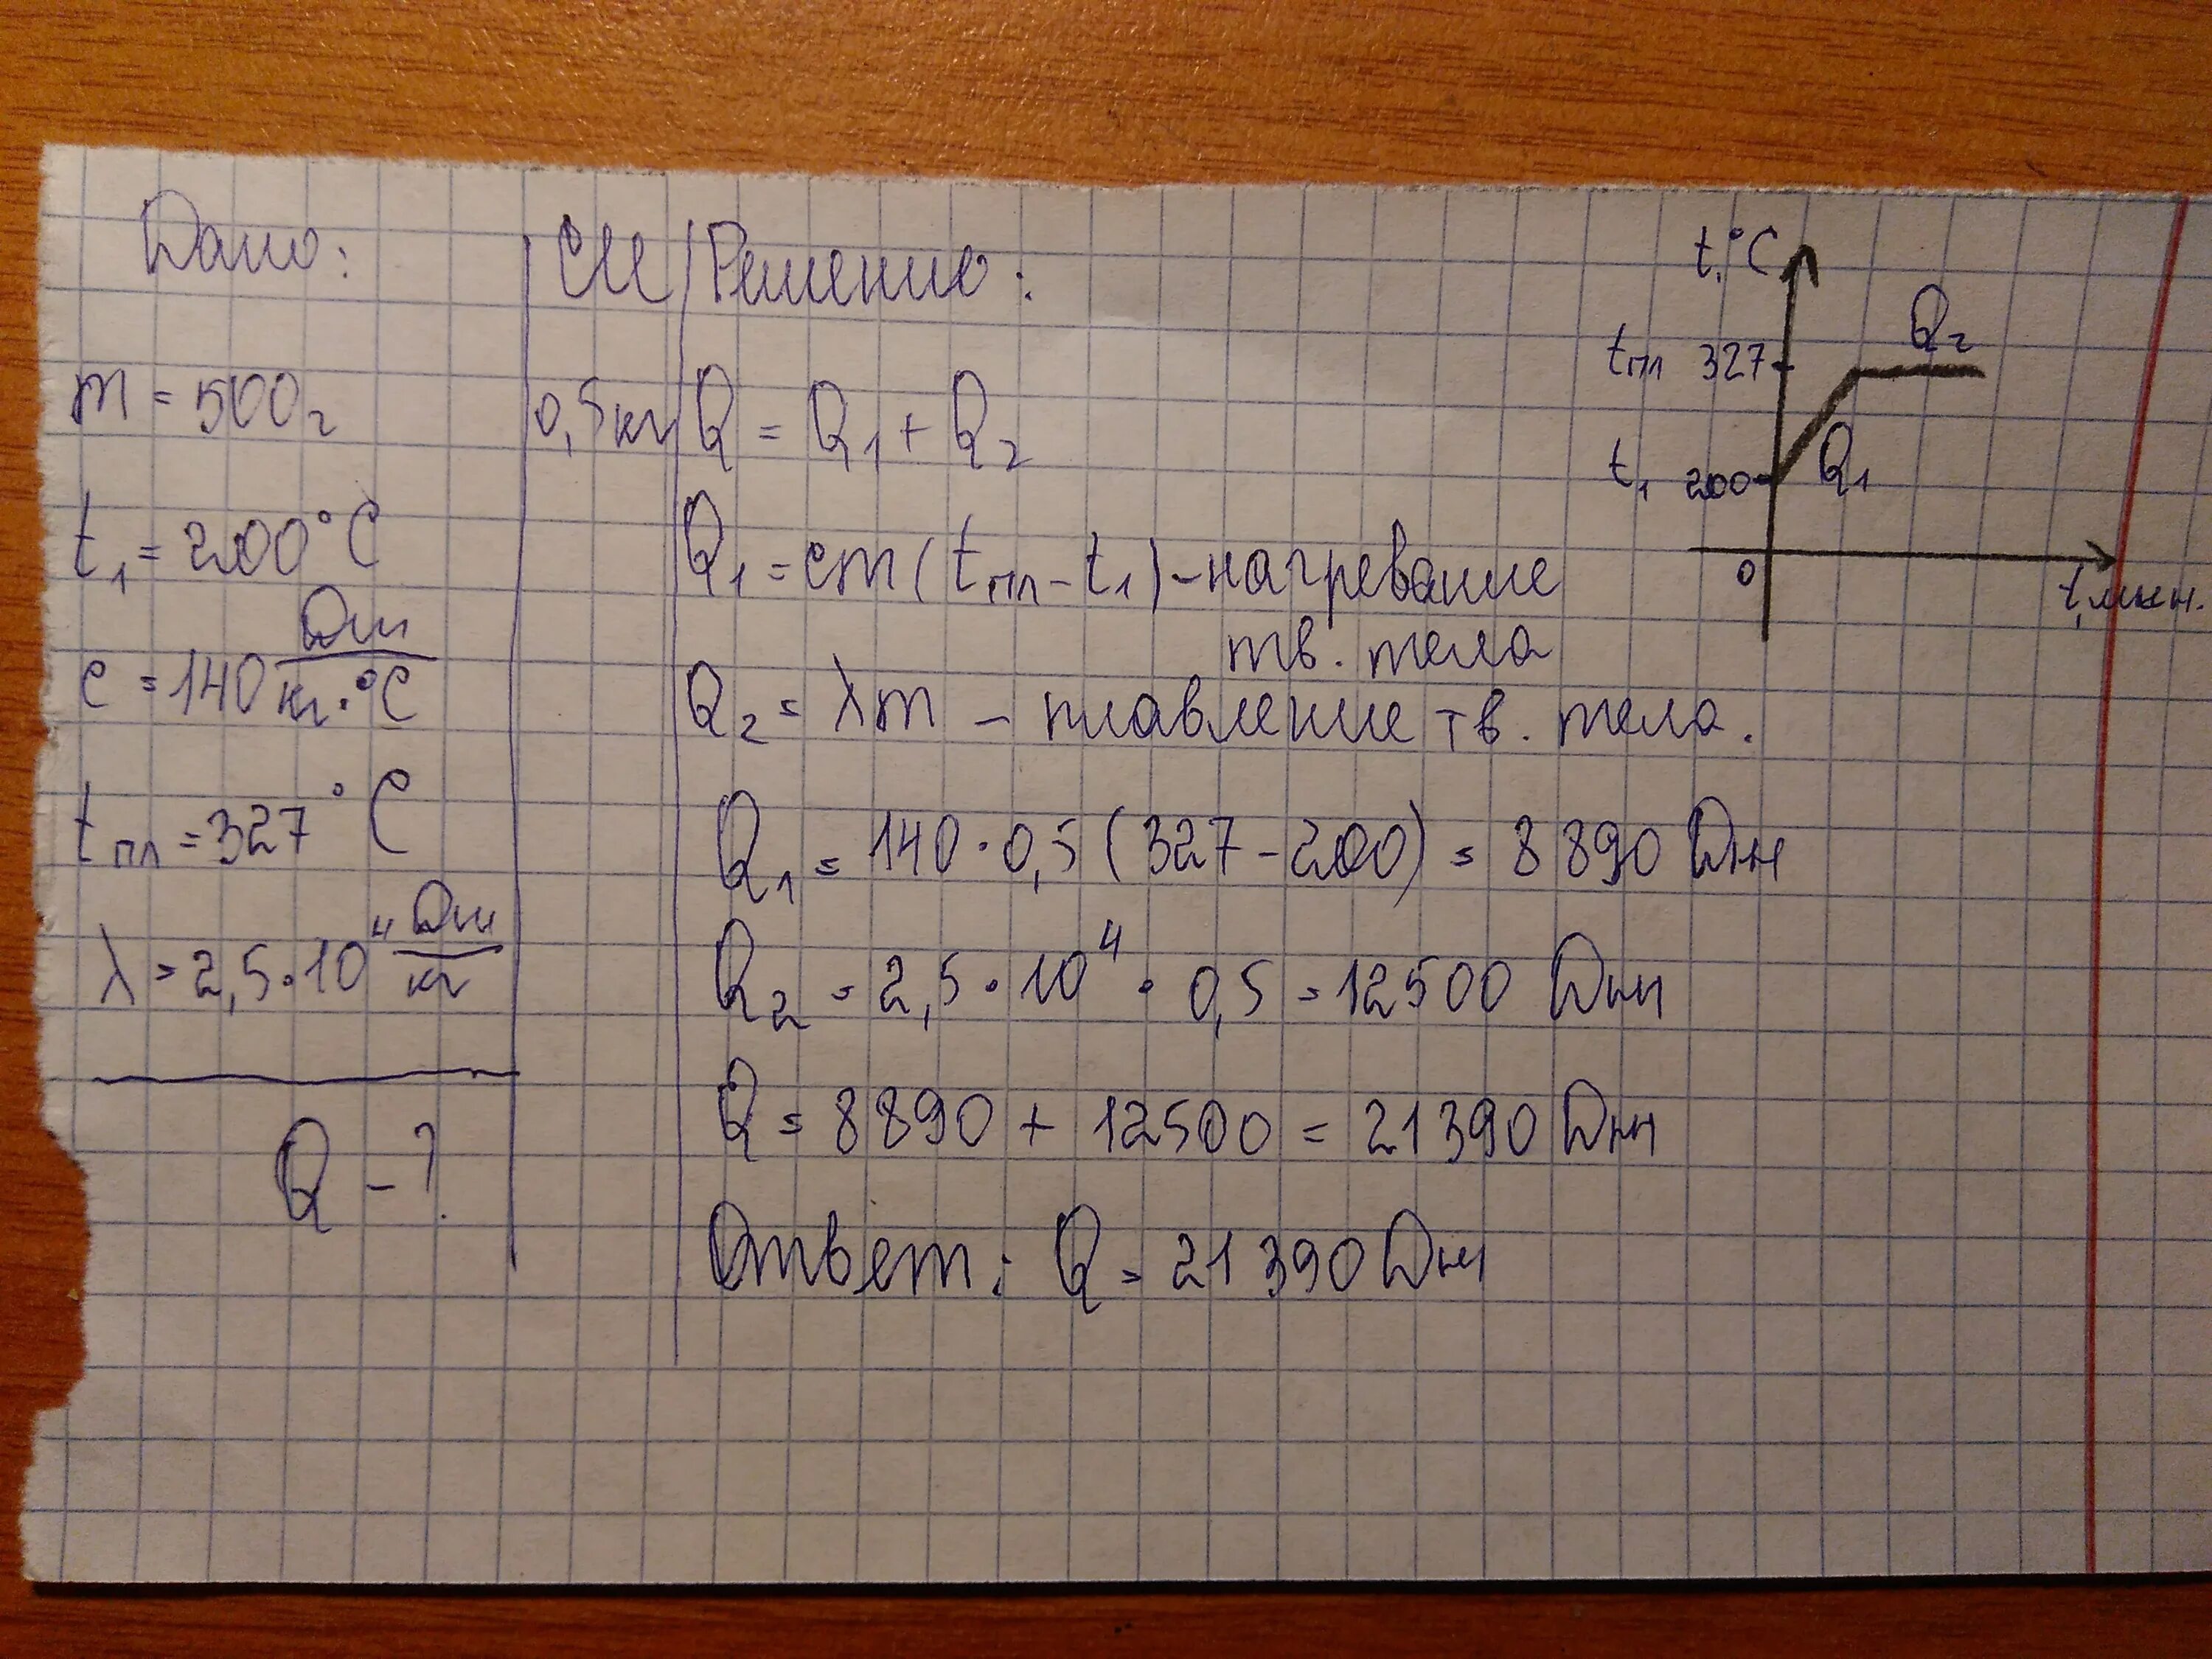 Дано:
m = 500г
t₁ = 200°C
c = 140 Дж/кг·°C
tпл = 327°C
λ = 2,5·10⁴ Дж/кг
Q - ?
СИ
0,5кг
Решение:
Q = Q₁ + Q₂
Q₁ = cm(tпл - t₁) - нагревание
тв. тела
Q₂ = λm - плавление тв. тела.
Q₁ = 140·0,5(327-200) = 8890 Дж
Q₂ = 2,5·10⁴·0,5 = 12500 Дж
Q = 8890 + 12500 = 21390 Дж
Ответ: Q = 21390 Дж
t,°C
Q₂
tпл 327
t₁ 200
Q₁
0
t, мин.